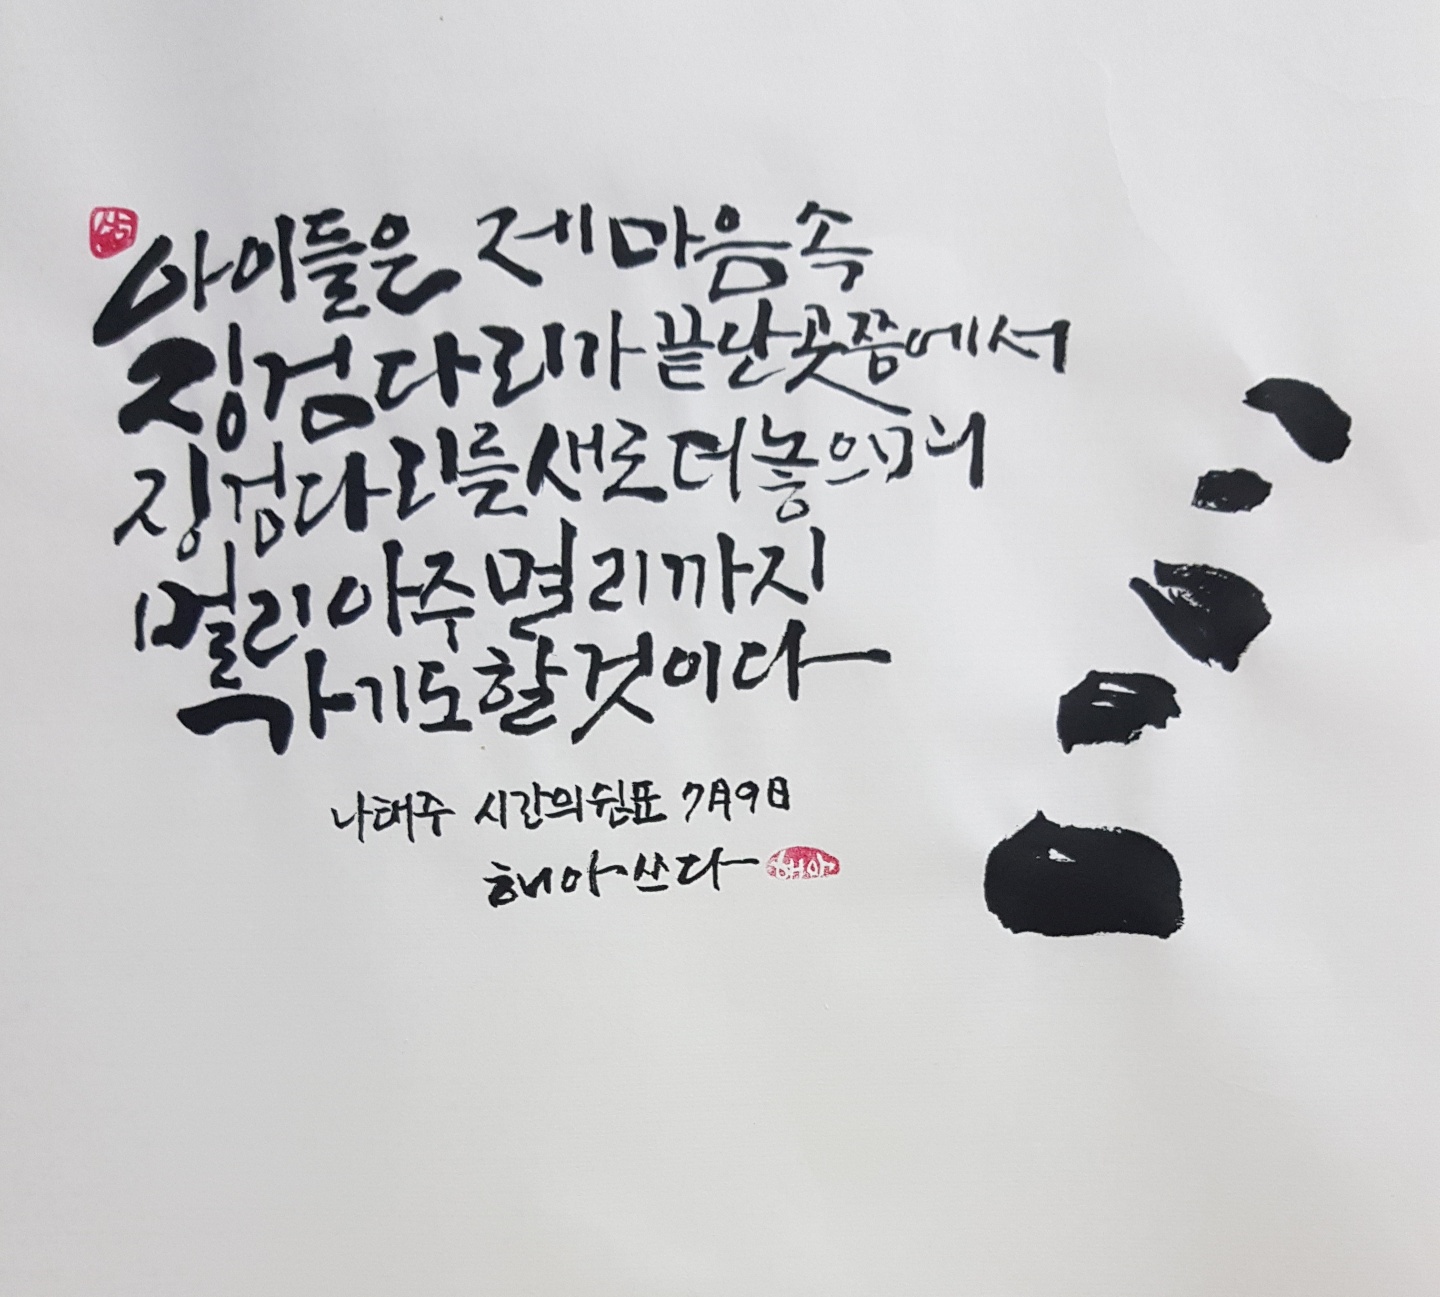 아이들은 제 마음속
징검다리가 끝난 곳쯤에서
징검다리를 새로 더 놓으며
멀리 아주 멀리까지
가기도 할 것이다
나태주 시간의 쉼표 7月9日
해아 쓰다 해아